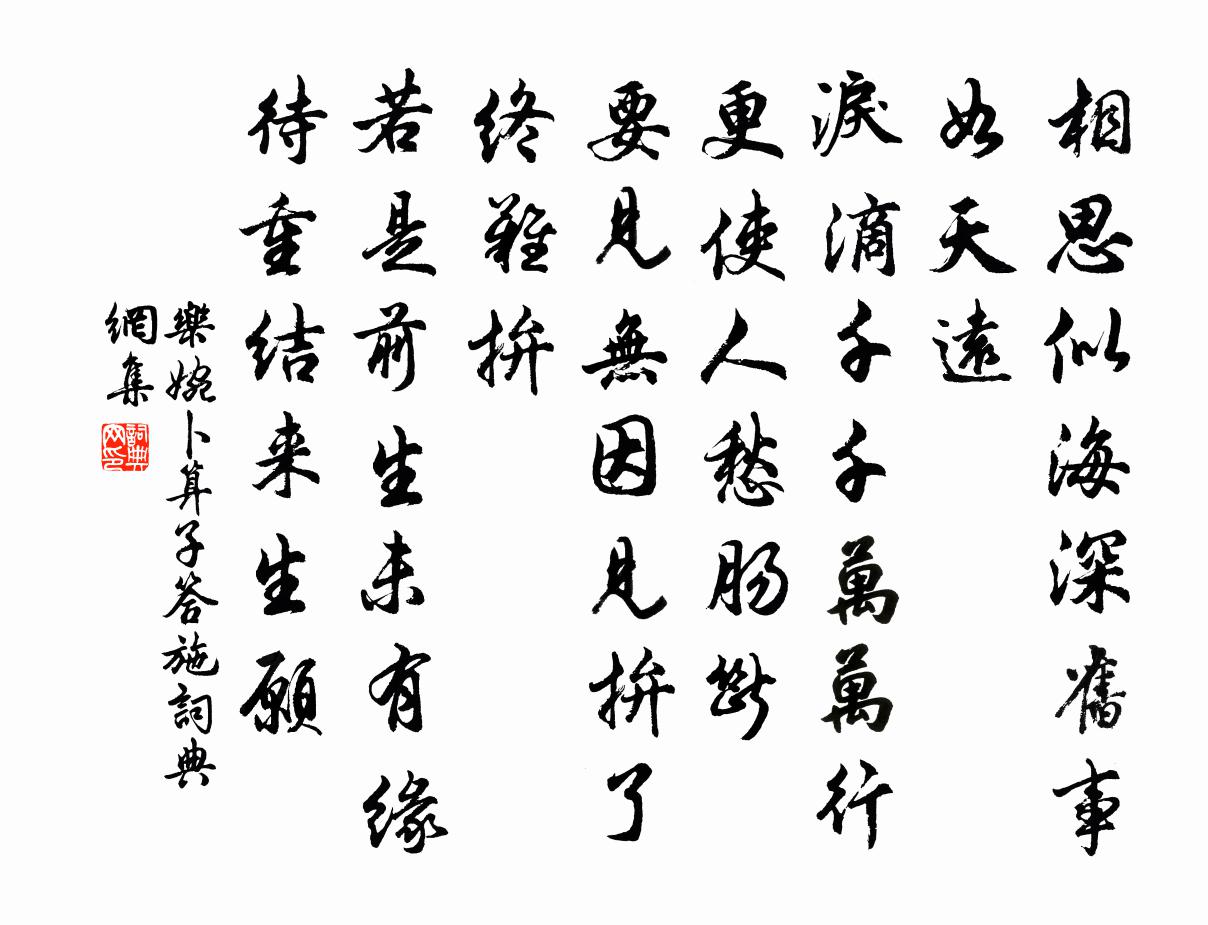 相思似海深舊事
如天遠
淚滴千千萬萬行
更使人愁腸斷
要見無因見拚了
終難拚
若是前生未有緣
待重结来生願
樂婉卜算子答施詞典
網集
詞典
网印